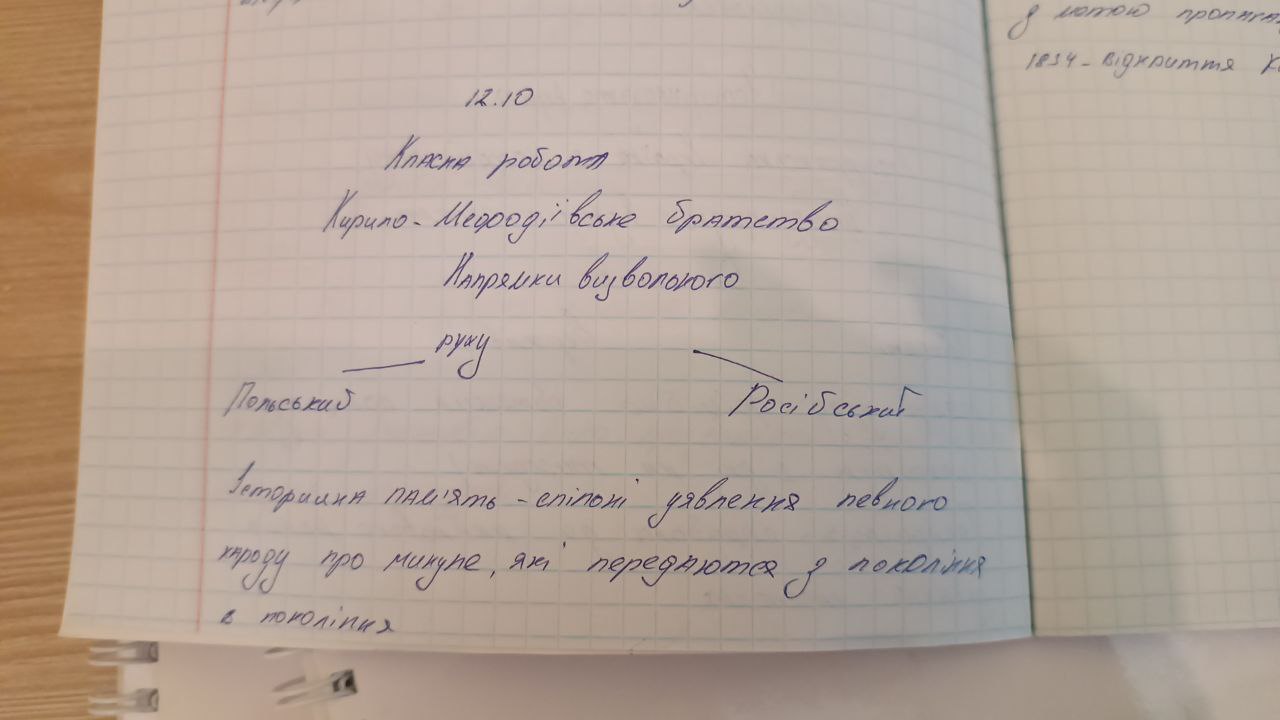 12.10
Класна робота
Кирило-Мефодіївське братство
Напрямки визвольного
руху
Польський Російський
Історична пам'ять - спільні уявлення певного
народу про минуле, які передаються з покоління
в покоління
з метою пропаган
1834 - відкриття